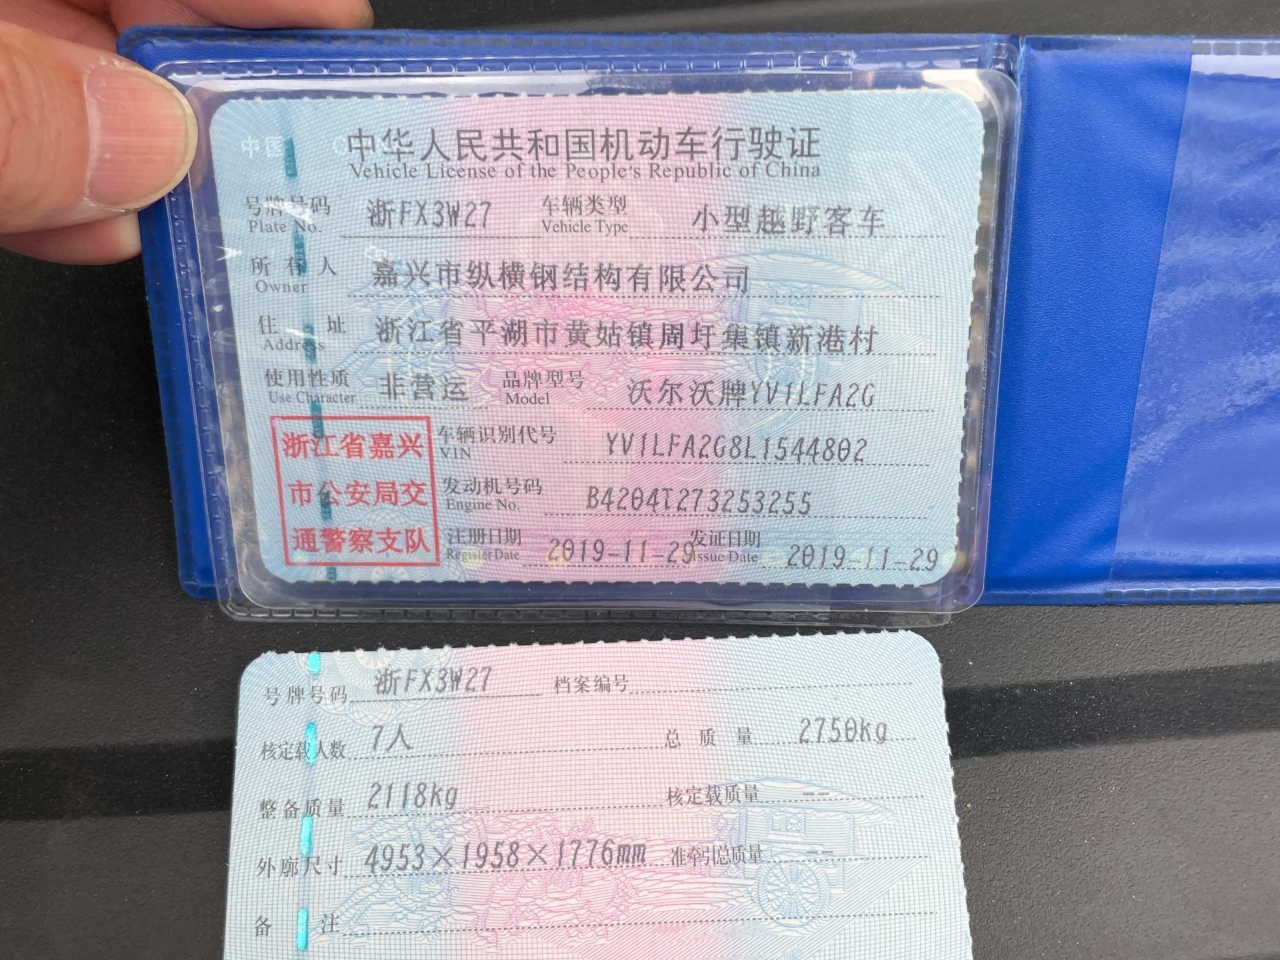 中华人民共和国机动车行驶证
Vehicle License of the People's Republic of China
号牌号码 浙FX3W27 车辆类型 小型越野客车
Plate No. Vehicle Type
所有人 嘉兴市纵横钢结构有限公司
Owner
住址 浙江省平湖市黄姑镇周圩集镇新港村
Address
使用性质 非营运 品牌型号 沃尔沃牌YV1LFA2G
Use Character Model
浙江省嘉兴
市公安局交
通警察支队
车辆识别代号 YV1LFA2G8L1544802
VIN
发动机号码 B4204T273253255
Engine No.
注册日期 2019-11-29 发证日期 2019-11-29
Register Date Issue Date
号牌号码 浙FX3W27 档案编号
核定载人数 7人 总质量 2750kg
整备质量 2118kg 核定载质量 --
外廓尺寸 4953×1958×1776mm 准牵引总质量 --
备注